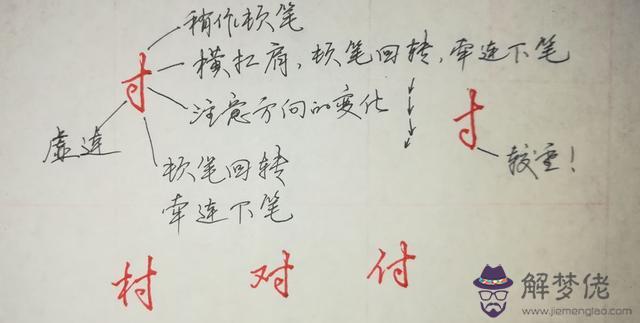 稍作顿笔
寸
横扛肩，顿笔回转，牵连下笔
注意方向的变化
寸
虚连
较重！
顿笔回转
牵连下笔
村 对 付
解梦佬
www.jiemenglao.com